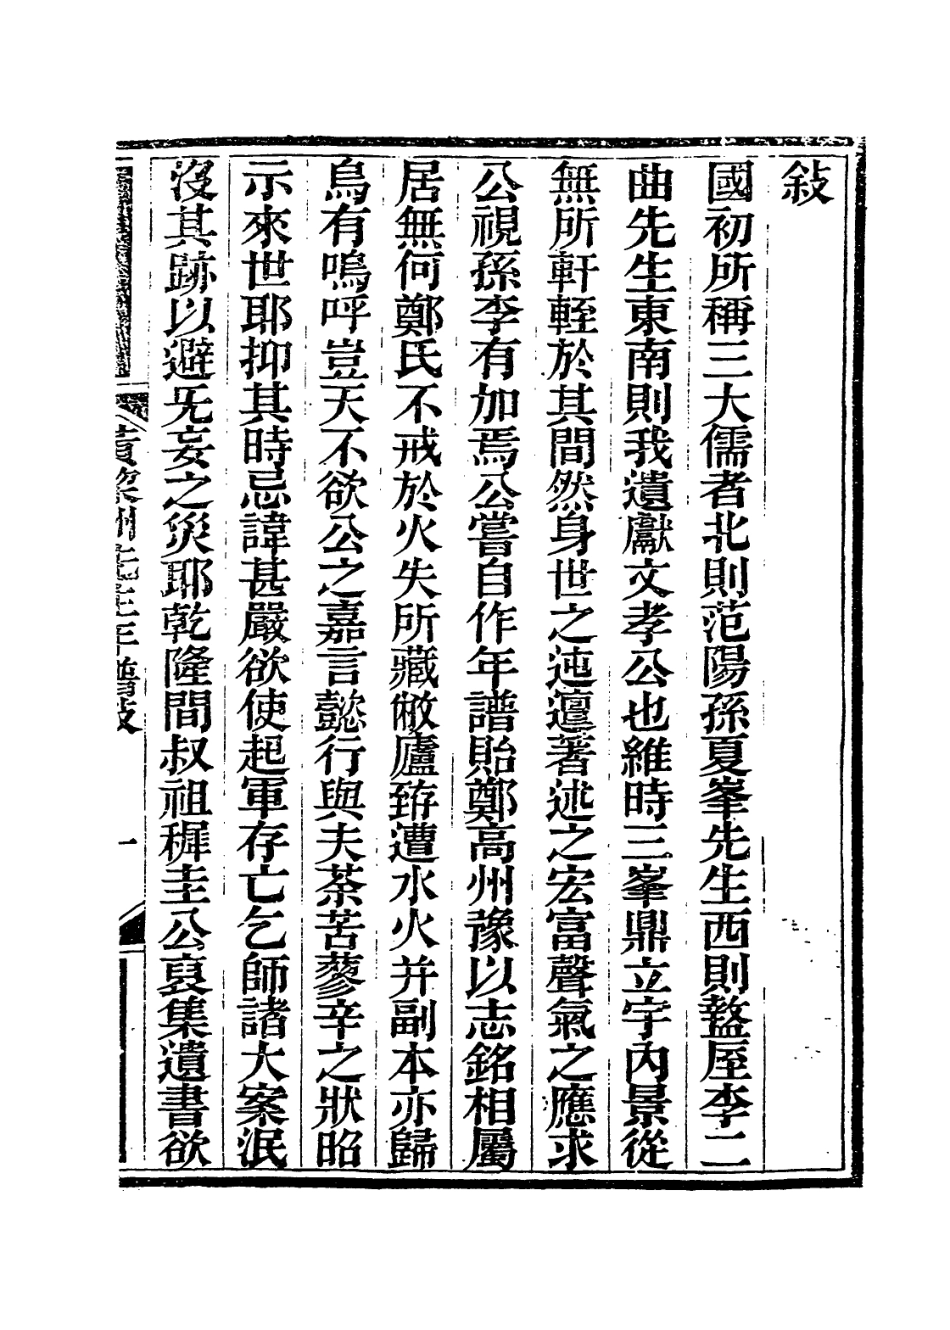 敍
國初所稱三大儒者北則范陽孫夏峯先生西則盩厔李二
曲先生東南則我遺獻文孝公也維時三峯鼎立宇內景從
無所軒輊於其間然身世之迍邅著述之宏富聲氣之應求
公視孫李有加焉公嘗自作年譜貽鄭高州豫以志銘相屬
居無何鄭氏不戒於火失所藏敝廬洊遭水火并副本亦歸
烏有嗚呼豈天不欲公之嘉言懿行與夫荼苦蓼辛之狀昭
示來世耶抑其時忌諱甚嚴欲使起軍存亡乞師諸大案泯
沒其跡以避旡妄之災耶乾隆間叔祖穉圭公裒集遺書欲
黃棃洲先生年譜敍
一